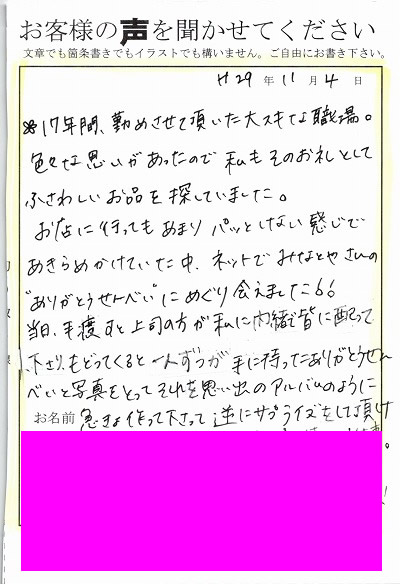 お客様の声を聞かせてください
文章でも箇条書きでもイラストでも構いません。ご自由にお書き下さい。
H 29 年 11 月 4 日
※17年間、勤めさせて頂いた大スキな職場。
色々な思いがあったので私もそのお礼として
ふさわしいお品を探していました。
お店に行ってもあまりパッとしない感じで
あきらめかけていた中、ネットでみなとやさんの
"ありがとうせんべい"にめぐり会えました!!
当日、手渡すと上司の方が私に内緒で皆に配って
下さり、もどってくると一人ずつが手に持ったありがとうせん
べいと写真をとってそれを思い出のアルバムのように
お名前
急きょ作って下さって逆にサプライズをして頂け